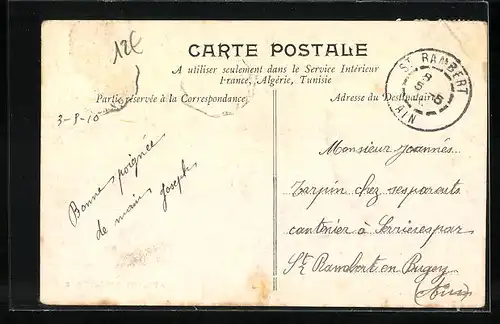 12€
CARTE POSTALE
A utiliser seulement dans le Service Intérieur
France, Algérie, Tunisie
Partie réservée à la Correspondance
Adresse du Destinataire
ST RAMBERT
AIN
3-9-10
Bonne poignée
de main Joseph
Monsieur Joannés
Tarpin chez ses parents
cantonier à Serrières par
St Rambert en Bugey
(Ain)